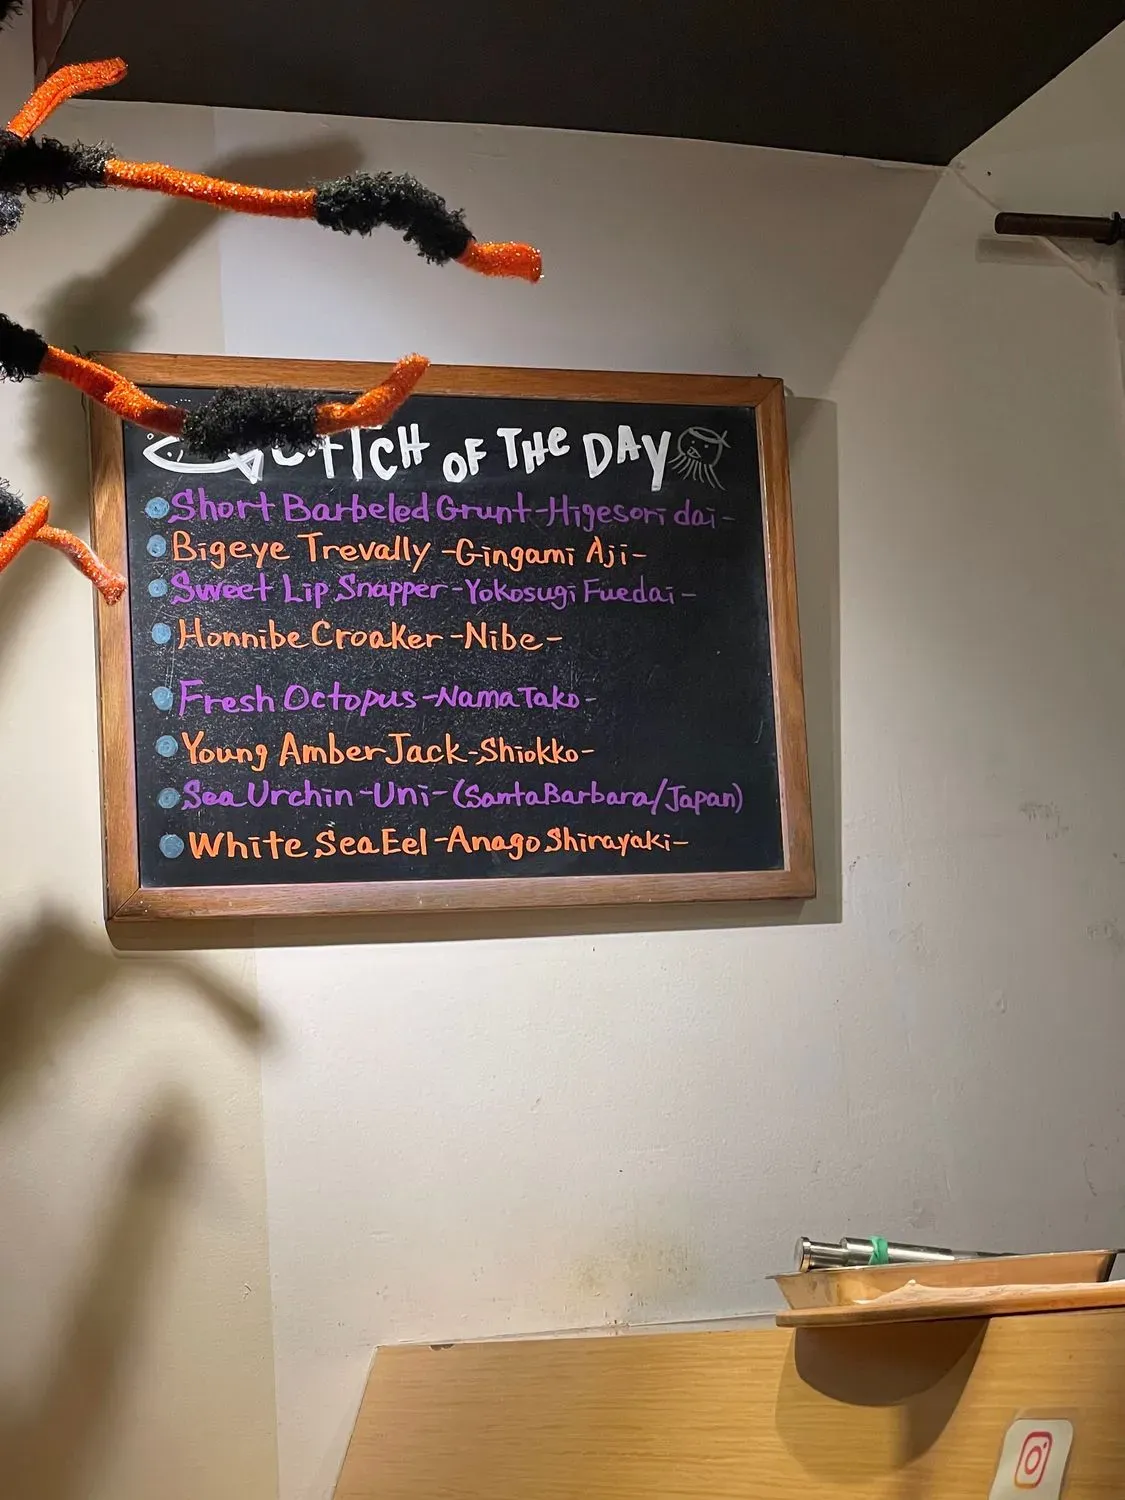 CATCH OF THE DAY
Short Barbeled Grunt -Higesori dai-
Bigeye Trevally -Gingami Aji-
Sweet Lip Snapper -Yokosugi Fuedai-
Honnibe Croaker -Nibe-
Fresh Octopus -Nama Tako-
Young Amber Jack -Shiokko-
Sea Urchin -Uni- (Santa Barbara/Japan)
White Sea Eel -Anago Shirayaki-